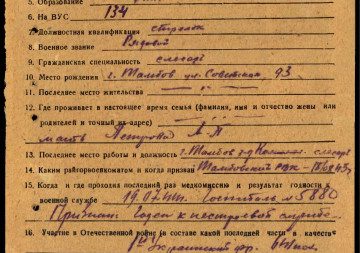 5. Образование
6. На ВУС 134
7. Должностная квалификация стрелок
8. Военное звание Рядовой
9. Гражданская специальность слесарь
10. Место рождения г. Тамбов ул. Советская, 93
11. Последнее место жительства
12. Где проживает в настоящее время семья (фамилия, имя и отчество жены или
родителей и точный их адрес)
мать Петрова А. П
13. Последнее место работы и должность г. Тамбов слесарь
14. Каким райгорвоенкоматом и когда призван Тамбовский
15. Когда и где проходил последний раз медкомиссию и результат годности к
военной службе 19.07. Госпиталь № 5880
Признан: Годен к нестроевой службе.
16. Участие в Отечественной войне (в составе какой последней части и в качестве
1й Украинский фр.